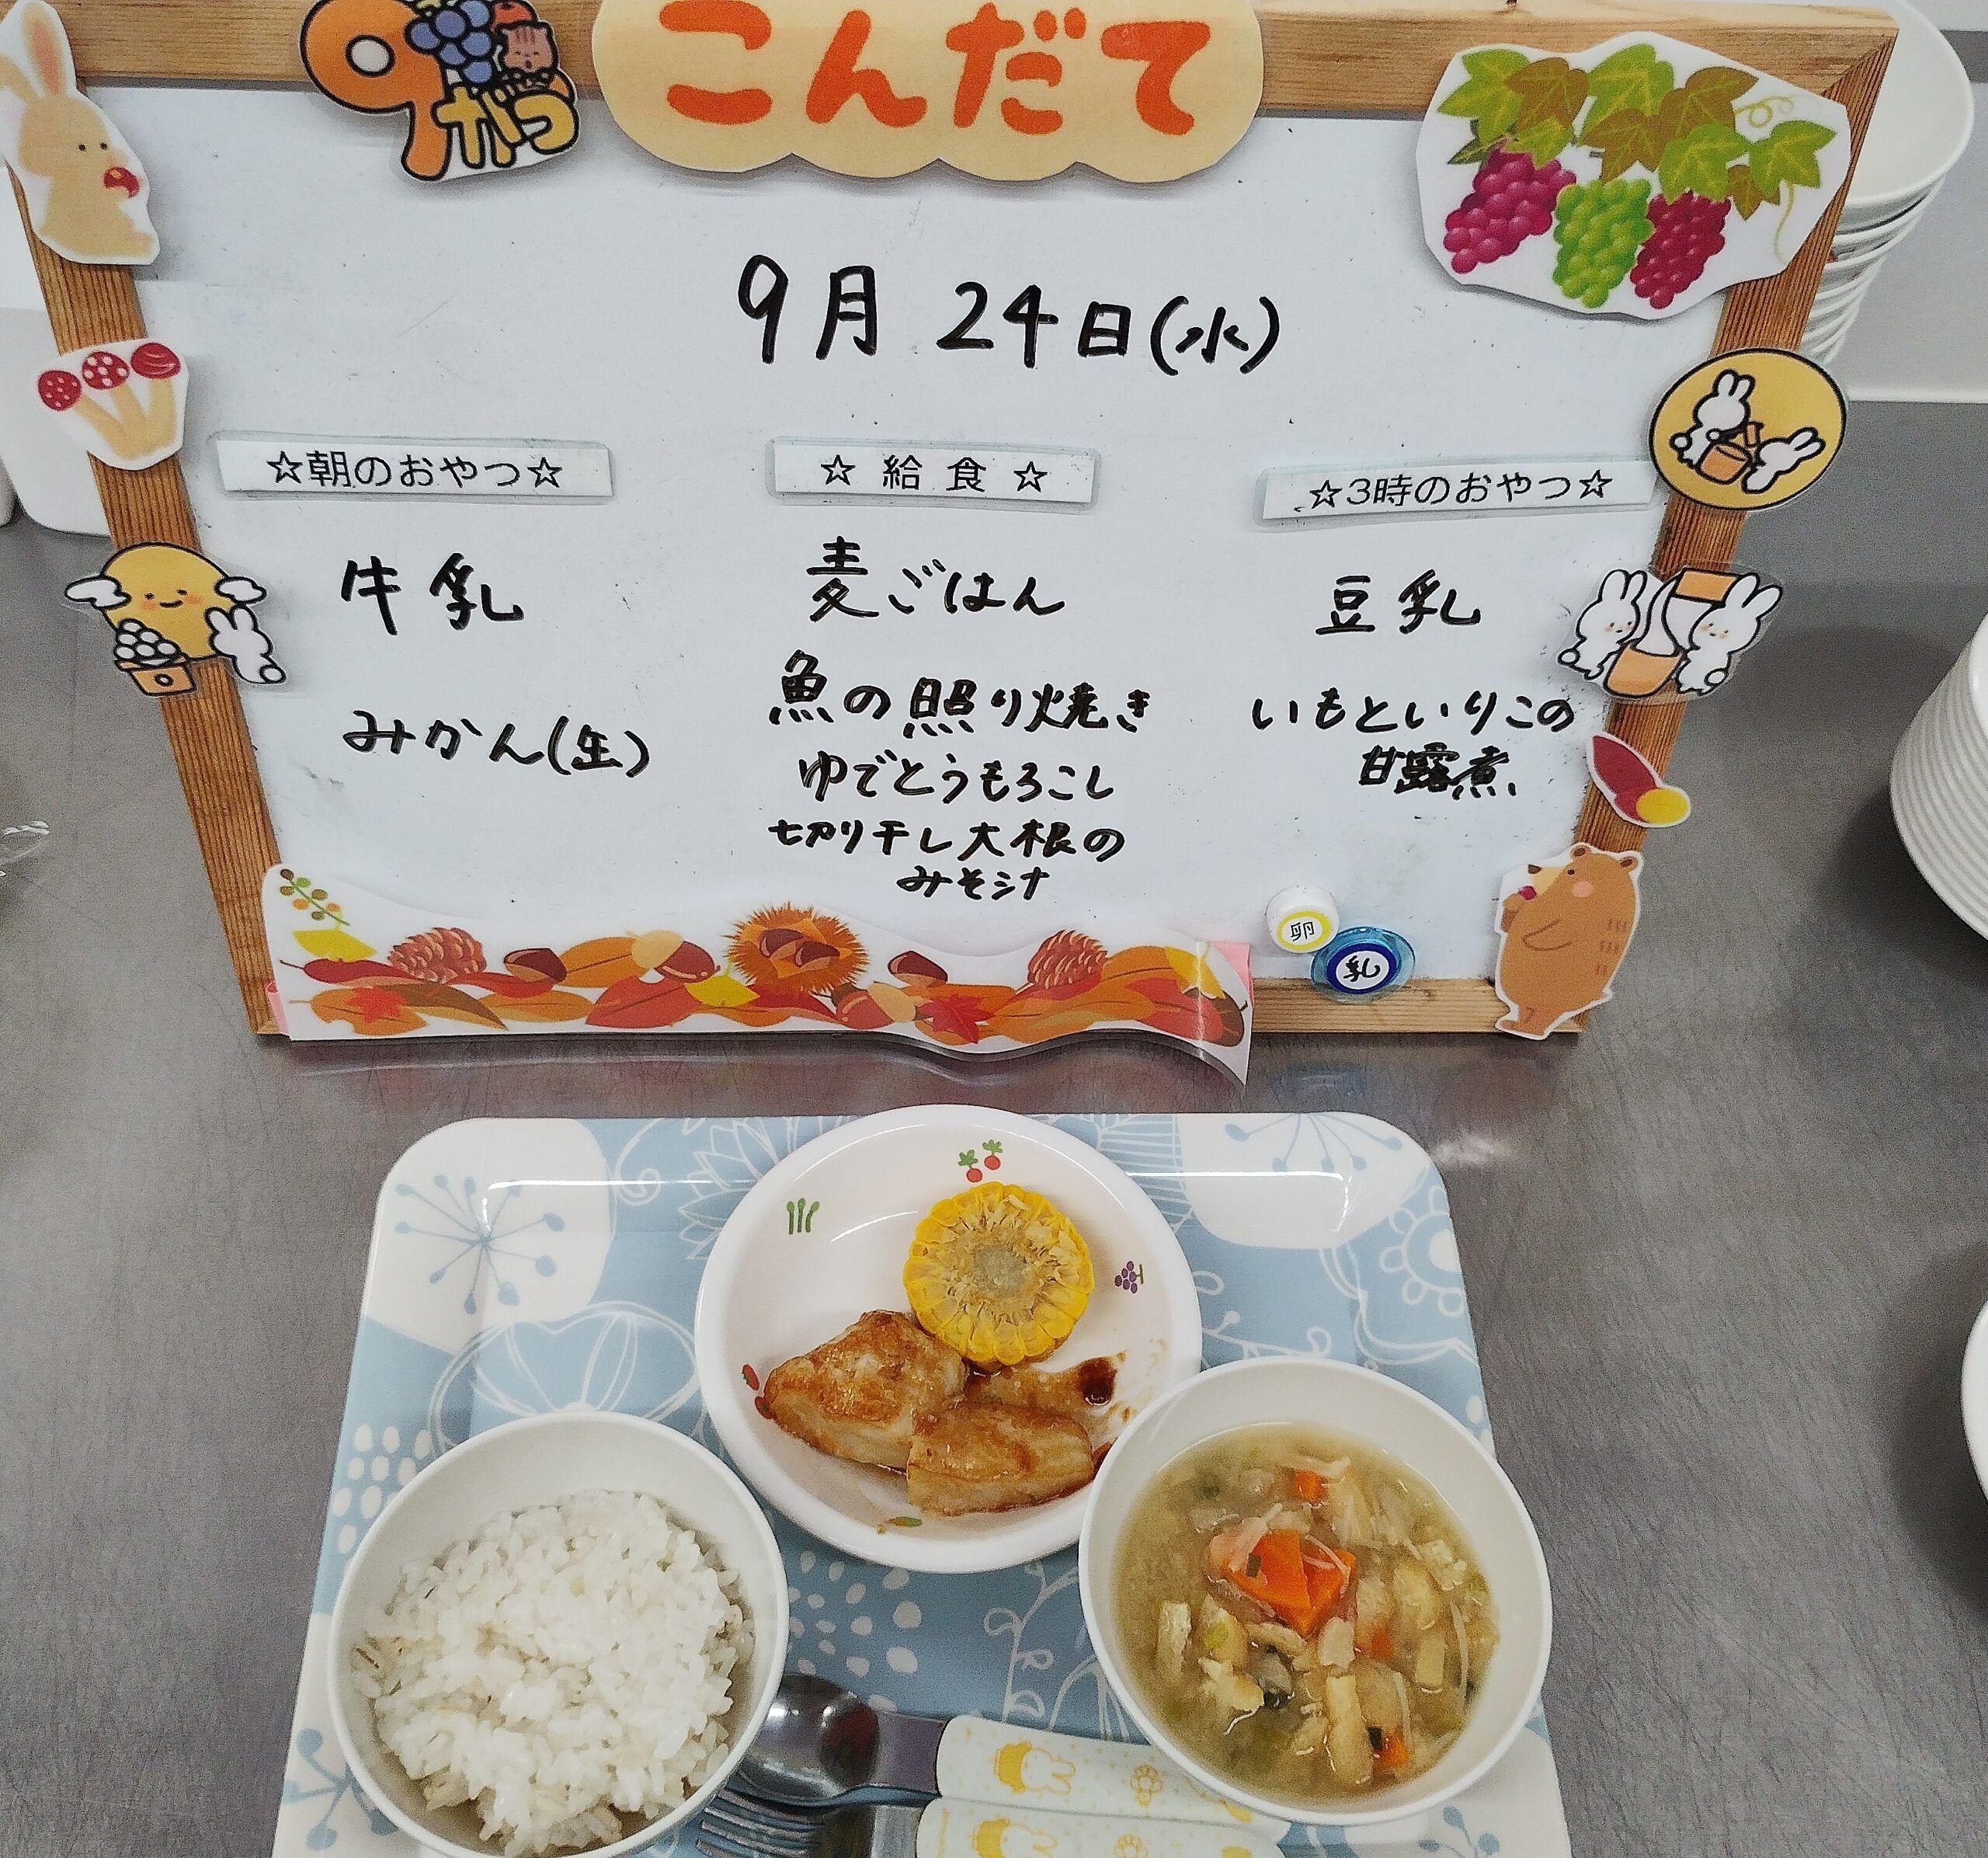 こんだて
9がつ
9月 24日(水)
☆朝のおやつ☆
牛乳
みかん(生)
☆ 給 食 ☆
麦ごはん
魚の照り焼き
ゆでとうもろこし
切り干し大根の
みそシナ
☆3時のおやつ☆
豆乳
いもといりこの
甘露煮
卵
乳